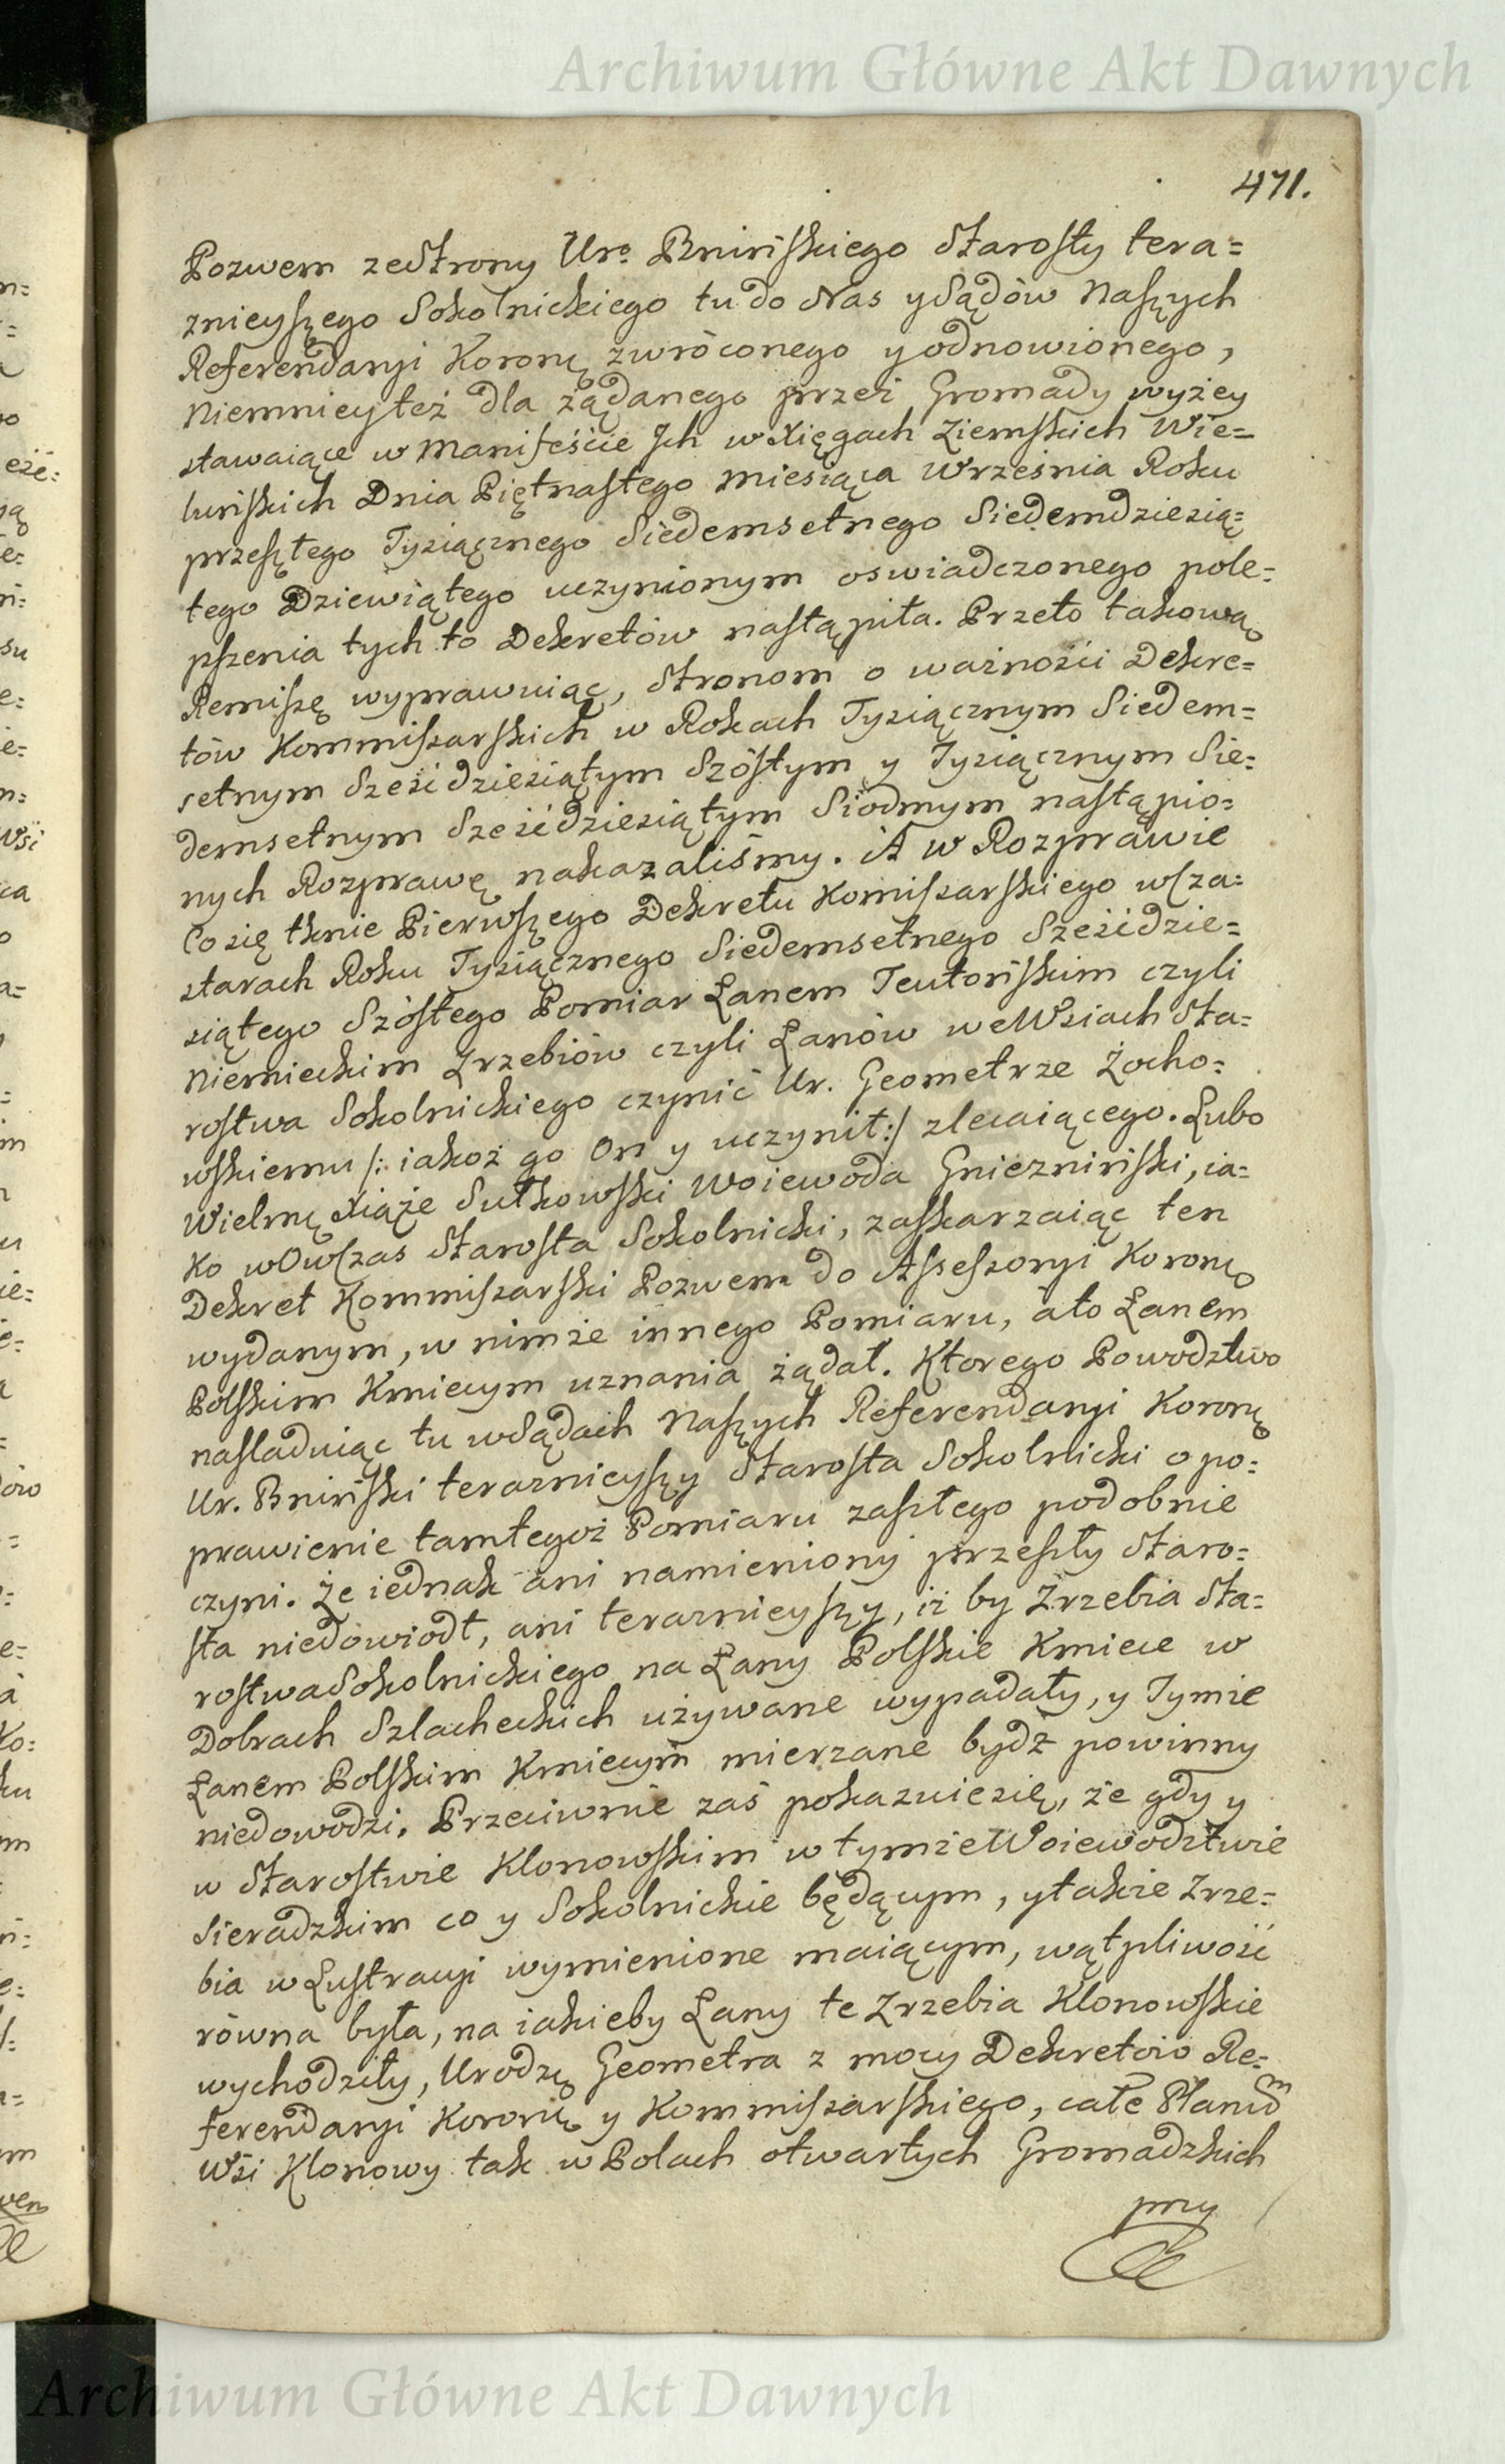 Archiwum Główne Akt Dawnych
471.
Pozwem ze Strony Uro Bnińskiego Starosty tera=
znieyszego Sokolnickiego tu do Nas y Sądów Naszych
Referendaryi Koronẏ zwróconego y odnowionego,
niemniey też dla żądanego przez Gromady wyżey
stawaiące w Manifeście Ich w Xięgach Ziemskich Wie=
luńskich Dnia Piętnastego Miesiąca Września Roku
przeszłego Tysiącznego Siedemsetnego Siedemdziesią=
tego Dziewiątego uczynionym oswiadczonego pole=
pszenia tych to Dekretów nastąpiła. Przeto takową
Remiszę wyprawuiąc, Stronom o ważności Dekre=
tów Kommissarskich w Rokach Tysiącznym Siedem=
setnym Sześćdziesiątym Szóstym y Tysiącznym Sie=
demsetnym Sześćdziesiątym Siodmym nastąpio=
nych Rozprawę nakazaliśmy. A w Rozprawie
Co się tknie Pierwszego Dekretu Komissarskiego w Cza=
starach Roku Tysiącznego Siedemsetnego Sześćdzie=
siątego Szóstego Pomiar Łanem Teutońskim czyli
Niemieckim Zrzebiów czyli Łanów we Wsiach Sta=
rostwa Sokolnickiego czynić Ur. Geometrze Żocho=
wskiemu /: iakoż go On y uczynił :/ zlecaiącego. Lubo
Wielmẏ Xiąże Sułkowski Woiewoda Gniezniński, ia=
ko wOwczas Starosta Sokolnicki, zaskarzaiąc ten
Dekret Kommissarski Pozwem do Assessoryi Koronẏ
wydanym, w nimże innego Pomiaru, a to Łanem
Polskim Kmiecym uznania żądał. Ktorego Powodztwo
nasladuiąc tu w Sądach Naszych Referendaryi Koronẏ
Ur. Bniński teraznieyszy Starosta Sokolnicki o po=
prawienie tamtegoż Pomiaru zaszłego podobnie
czyni. Że iednak ani namieniony przeszły Staro=
sta niedowiodł, ani teraznieyszy, iż by Zrzebia Sta=
rostwa Sokolnickiego na Łany Polskie Kmiece w
Dobrach Szlacheckich używane wypadały, y Tymże
Łanem Polskim Kmiecym mierzane bydź powinny
niedowodzi. Przeciwnie zaś pokazuiesię, że gdy y
w Starostwie Klonowskim w tymże Woiewodztwie
Sieradzkim co y Sokolnickie będącym, y takie Zrze=
bia w Lustracyi wymienione maiącym, wątpliwość
równa była, na iakieby Łany te Zrzebia Klonowskie
wychodziły, Urodzẏ Geometra z mocy Dekretów Re=
ferendaryi Koronẏ y Kommissarskiego, całe Planum
Wsi Klonowy tak w Polach otwartych Gromadzkich
przy
Archiwum Główne Akt Dawnych